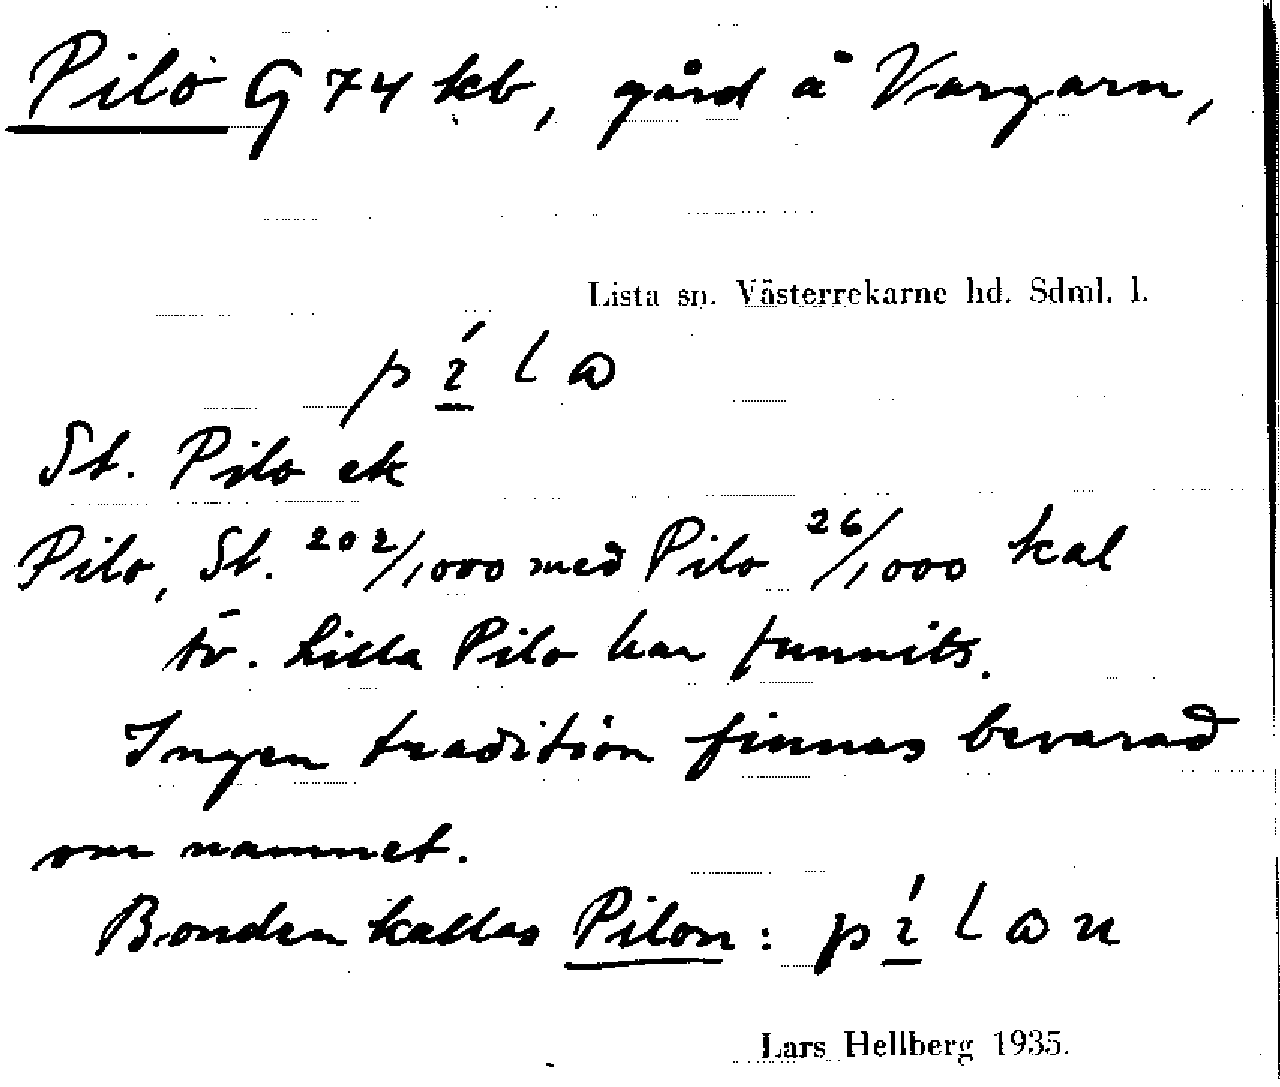 Pilo G 74 kb, gård å Vargarn,
Lista sn. Västerrekarne hd. Sdml. l.
St. Pilo ek
Pilo, St. 202/1000 med Pilo 26/1000 kal
tr. Lilla Pilo har funnits.
Ingen tradition finnas bevarad
om namnet.
Bonden kallas Pilon:
Lars Hellberg 1935.